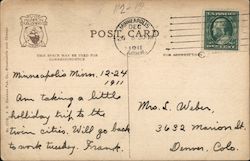 POST CARD
THIS SPACE MAY BE USED FOR
CORRESPONDENCE
MINNEAPOLIS
DEC
1911
Minneapolis Minn. 12-24
1911
Am taking a little
holliday trip to the
twin cities. Will go back
to work tuesday. Frank.
Mrs. L. Weber,
3632 Marion St.
Denver, Colo.